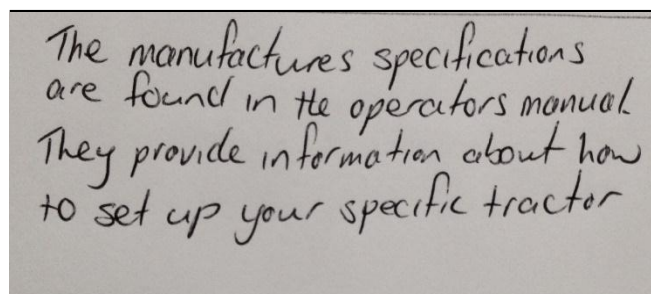 The manufactures specifications
are found in the operators manual.
They provide information about how
to set up your specific tractor